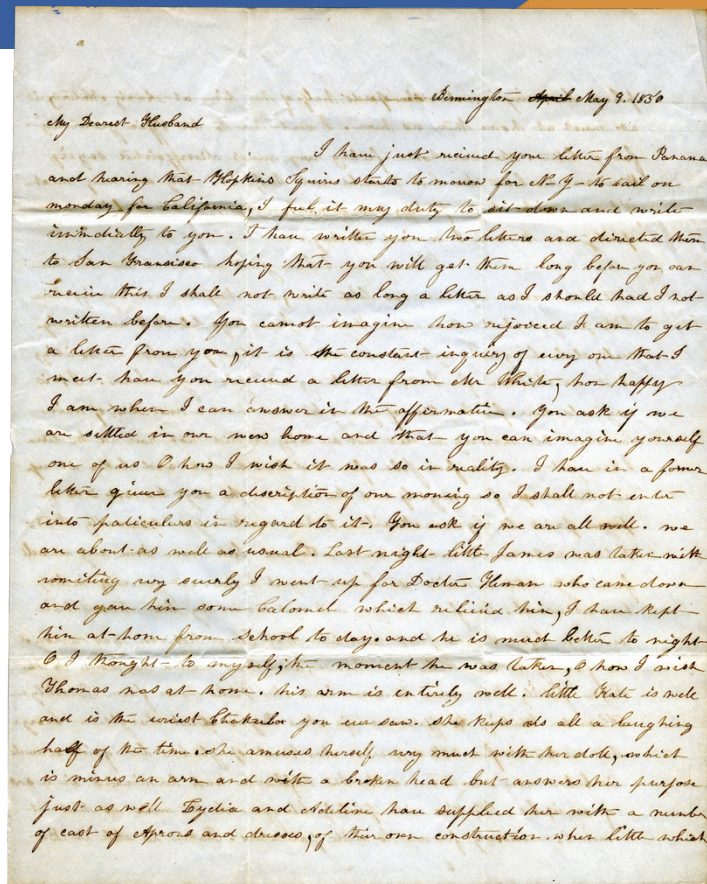 Bennington April May 9. 1850
My Dearest Husband
I have just recieved your letter from Panama
and hearing that Hopkins Squires starts to morrow for N-Y- to sail on
monday for California, I feel it my duty to sit down and write
immidiatly to you. I have written you two letters and directed them
to San Fransisco hoping that you will get them long before you can
recieve this I shall not write as long a letter as I should had I not
written before. You cannot imagine how rejoiced I am to get
a letter from you, it is the constant inquiry of every one that I
meet have you recieved a letter from Mr White, how happy
I am when I can answer in the affirmative. You ask if we
are settled in our new home and that you can imagine yourself
one of us O how I wish it was so in reality. I have in a former
letter given you a discription of our moveing so I shall not enter
into paticulers in regard to it. You ask if we are all well. we
are about as well as usual. Last night little James was taken with
vomiting very sevrly I went up for Docter who came down
and gave him some Calomel which relieved him, I have kept
him at home from school to day. and he is much better to night
O I thought to myself, the moment he was taken, O how I wish
Thomas was at home. his arm is entirely well. little Kate is well
and is the you ever saw. she keeps us all a laughing
half of the time. she amuses herself very much with her doll, which
is minus an arm and with a broken head but answers her purpose
just as well Lydia and Adiline have supplied her with a number
of cast of Aprons and dresses, of their own construction. when little which